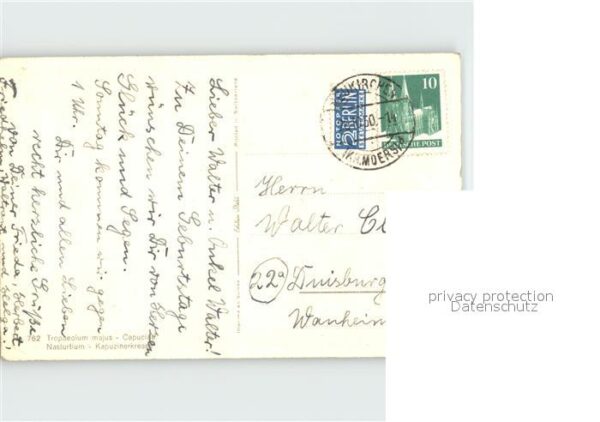 Lieber Walter u. Onkel Walter!
Zu Deinem Geburtstage
wünschen wir Dir von Herzen
Glück und Segen.
Sonntag kommen wir gegen
1 Uhr.
Dir und allen Lieben
recht herzliche Grüße
von Deiner Frieda, Herbert
762 Tropaeolum majus - Capucine
Nasturtium - Kapuzinerkresse
NOTOPFER
2 BERLIN
STEUERMARKE
10
DEUTSCHE POST
Herrn
Walter
22a Duisburg
Wanheim
privacy protection
Datenschutz